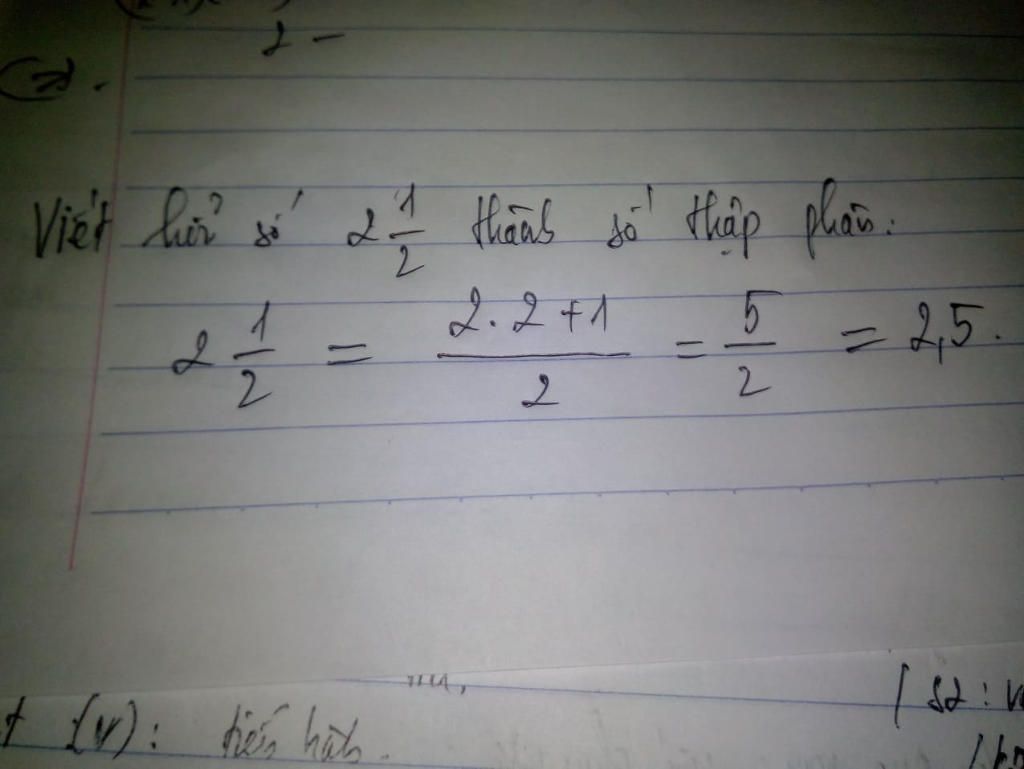 2 -
Viết hỗn số 2 1/2 thành số thập phân:
2 1/2 = (2 . 2 + 1)/2 = 5/2 = 2,5.
(v): tiến hành.
/ S2 :